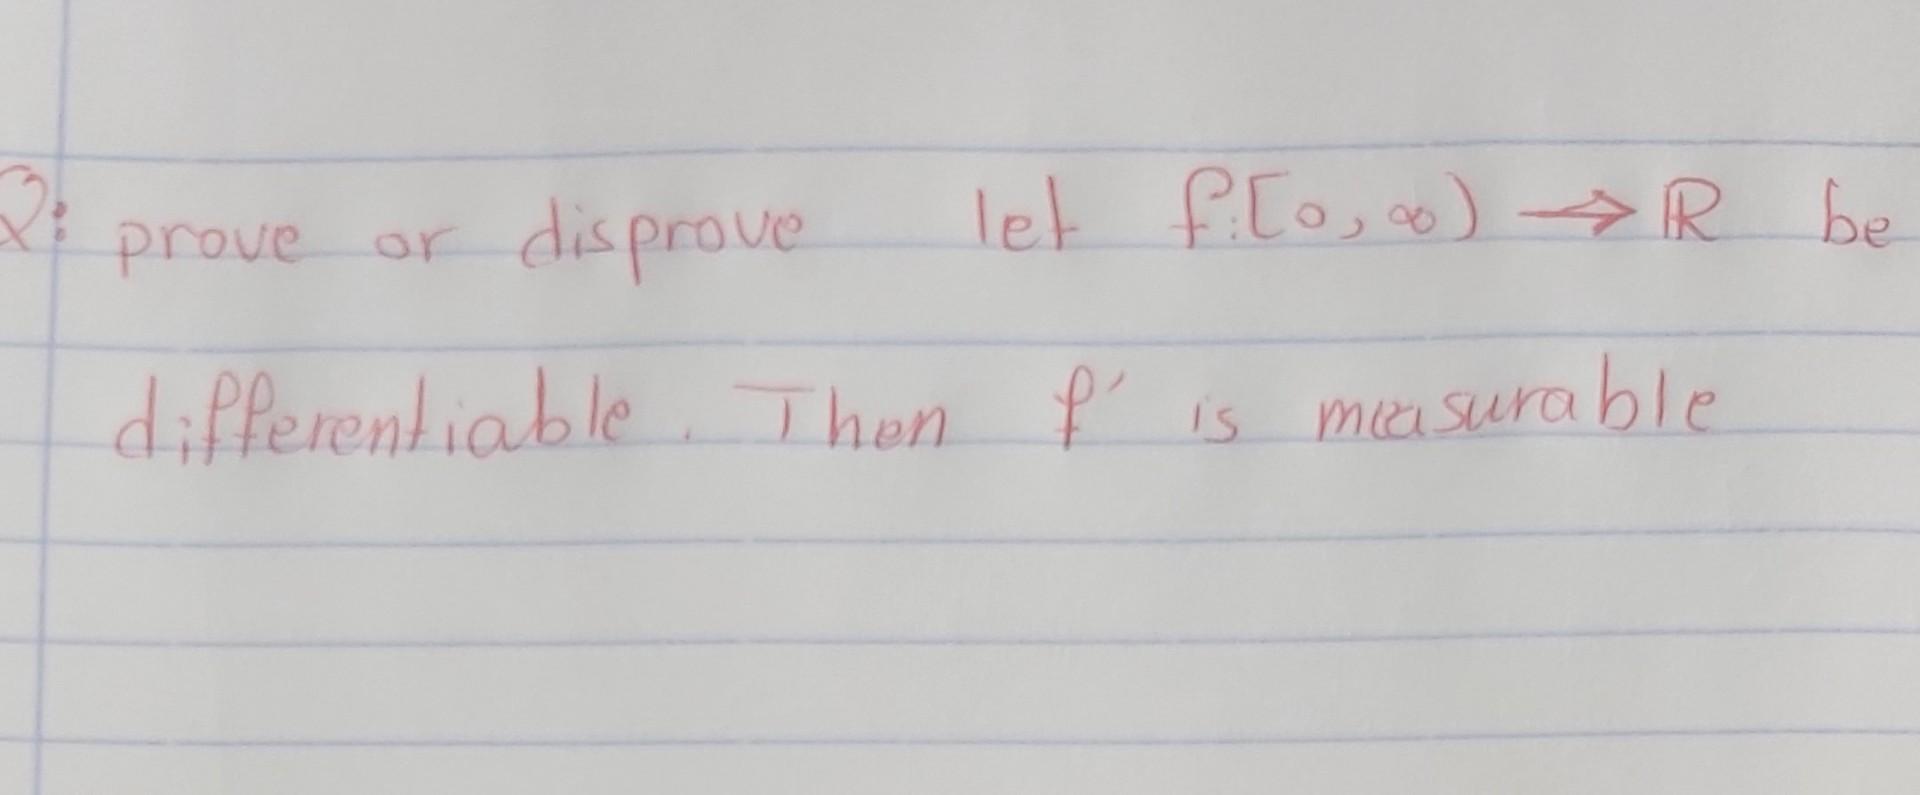 Q: prove or disprove let f:[0,∞) → ℝ be
differentiable. Then f' is measurable